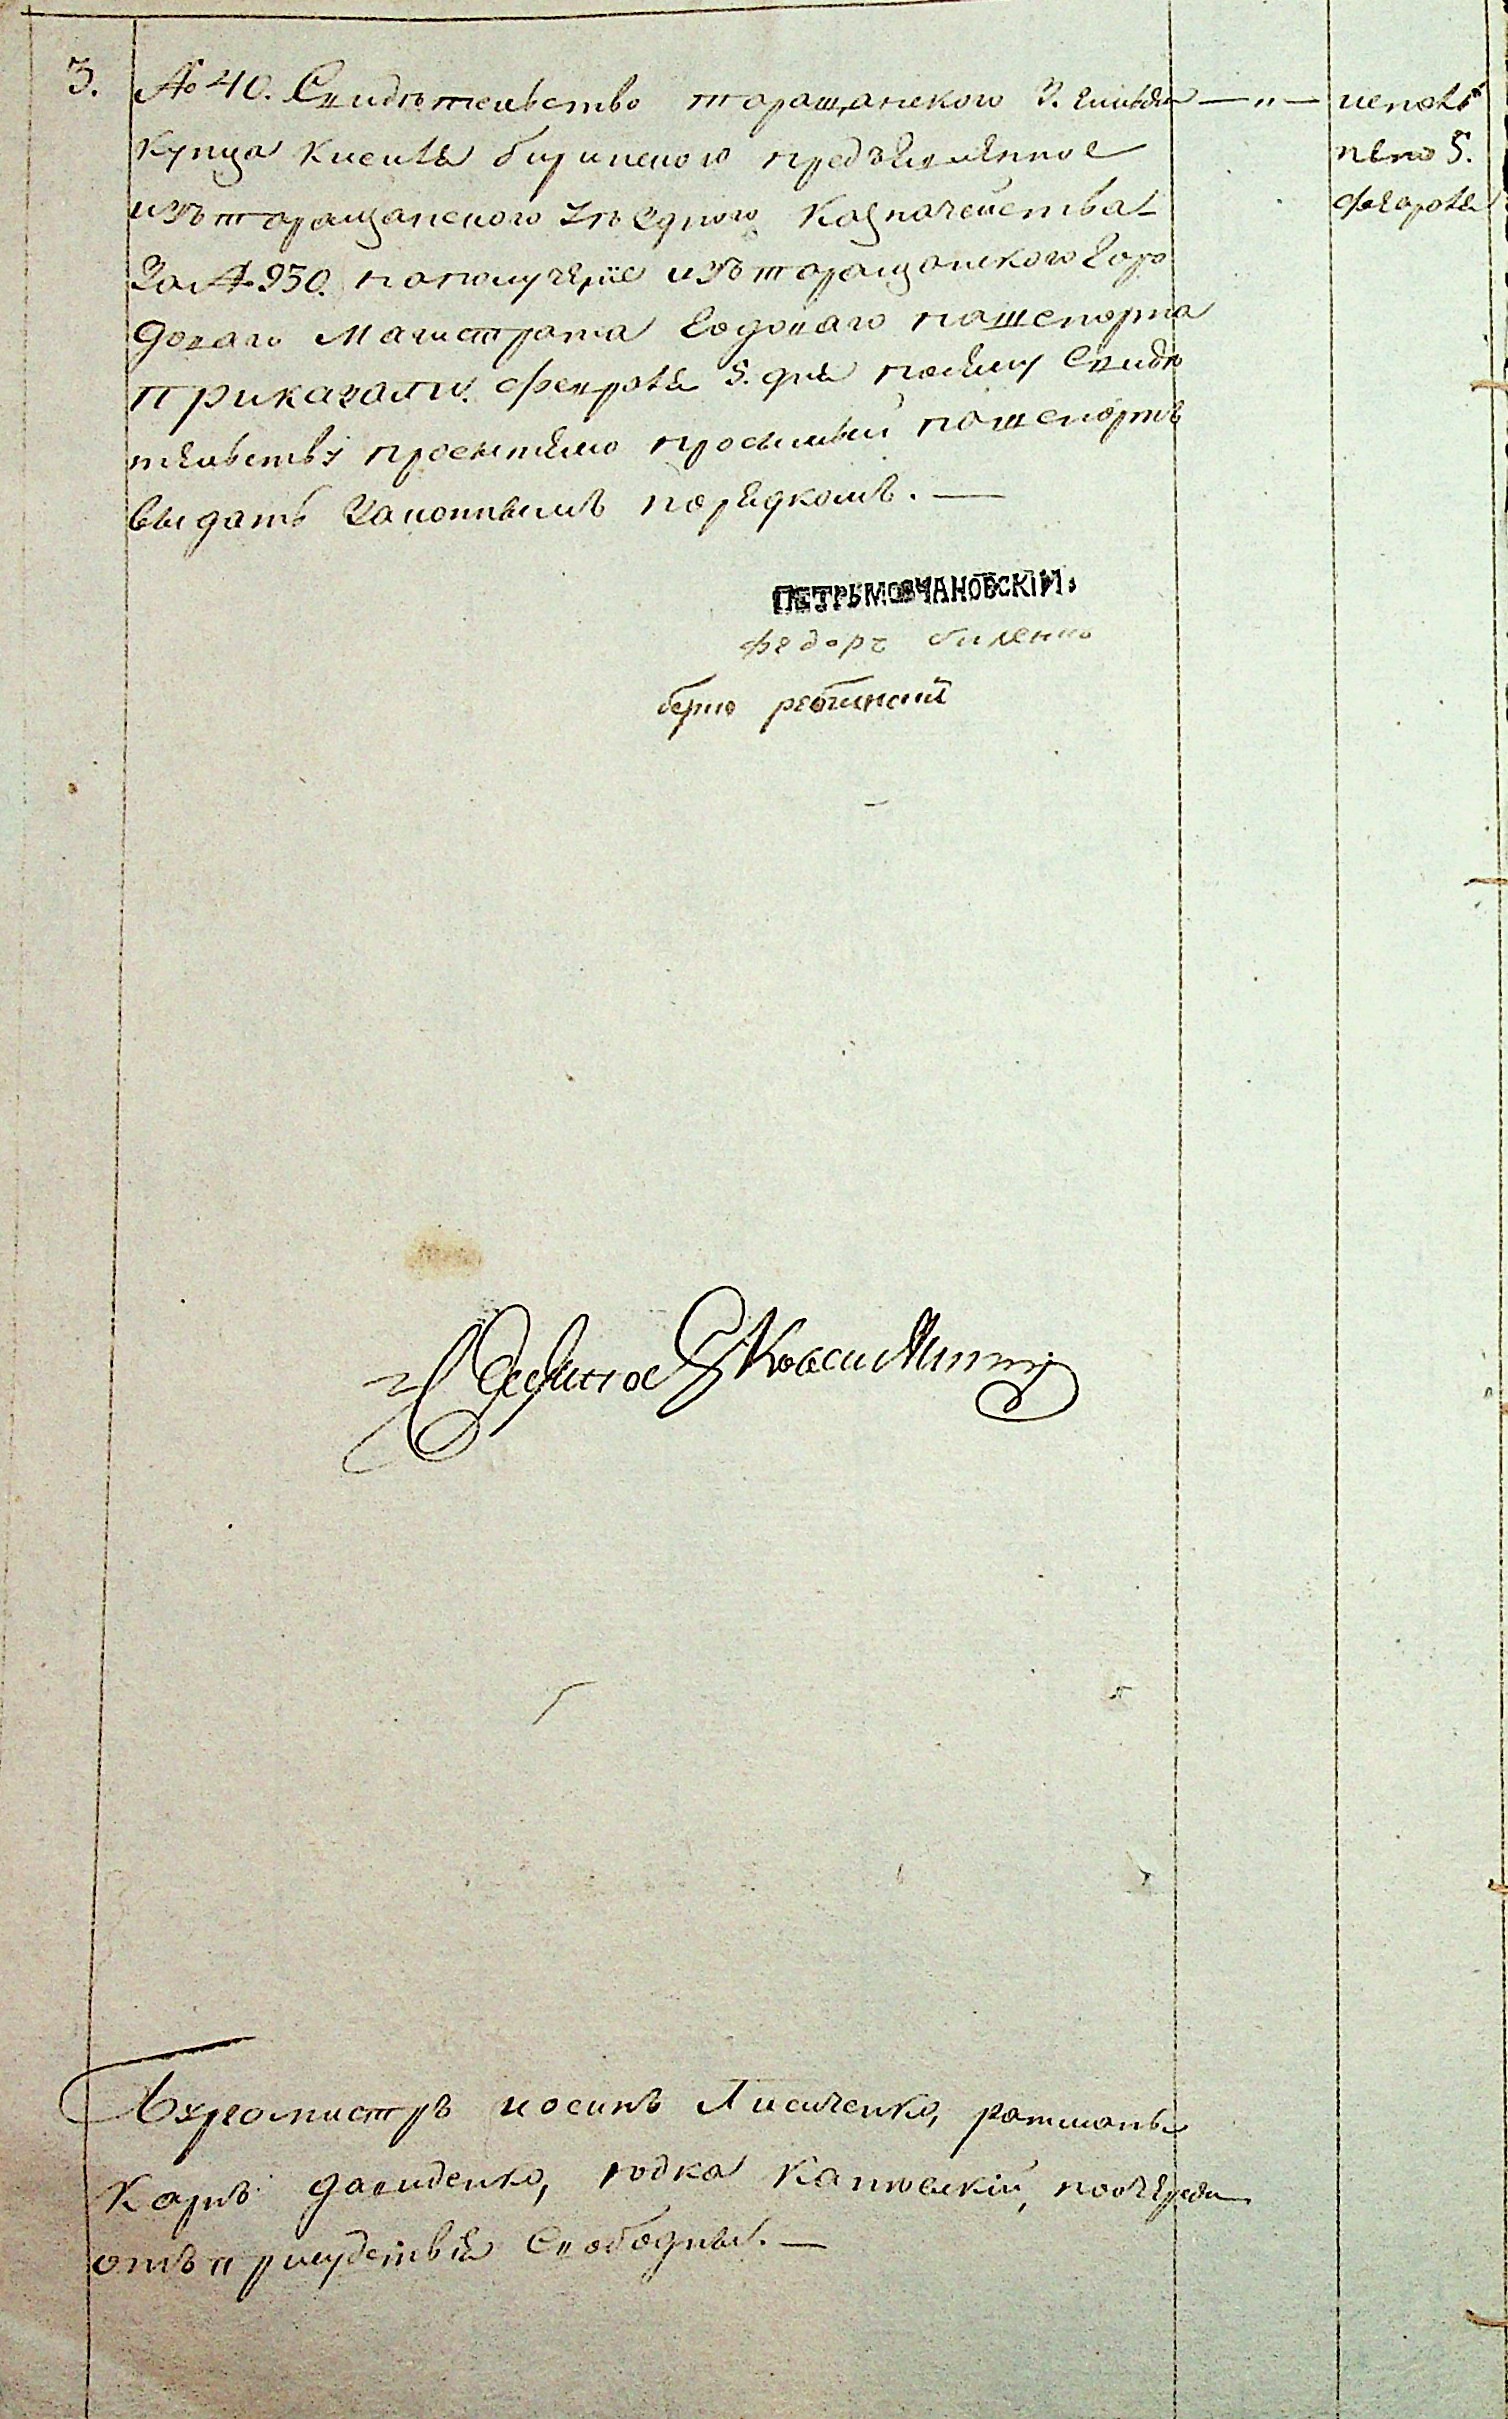 3. № 40. Свидѣтельство таращанского 3. гильдіи — " — исполъ
купца Киселя биринского предъявленное
изъ таращанского уѣздного Казначейства
За № 930. на получѣніе изъ таращанского Горо
дового Магистрата Годового пашепорта
приказали. февраля 5. дня по сему Свидѣ
тельству просителю просимый пашепортъ
выдать законнымъ порядкомъ. —
нено 5.
февраля
ПЕТРЪ МОВЧАНОВСКІЙ.
федоръ биленко
берко ребинский
Бургомистръ иосипъ Лисиченко, ратманы
Карпъ давиденко, юдка Каневский, по очереди
отъ присудствія Свободны. —